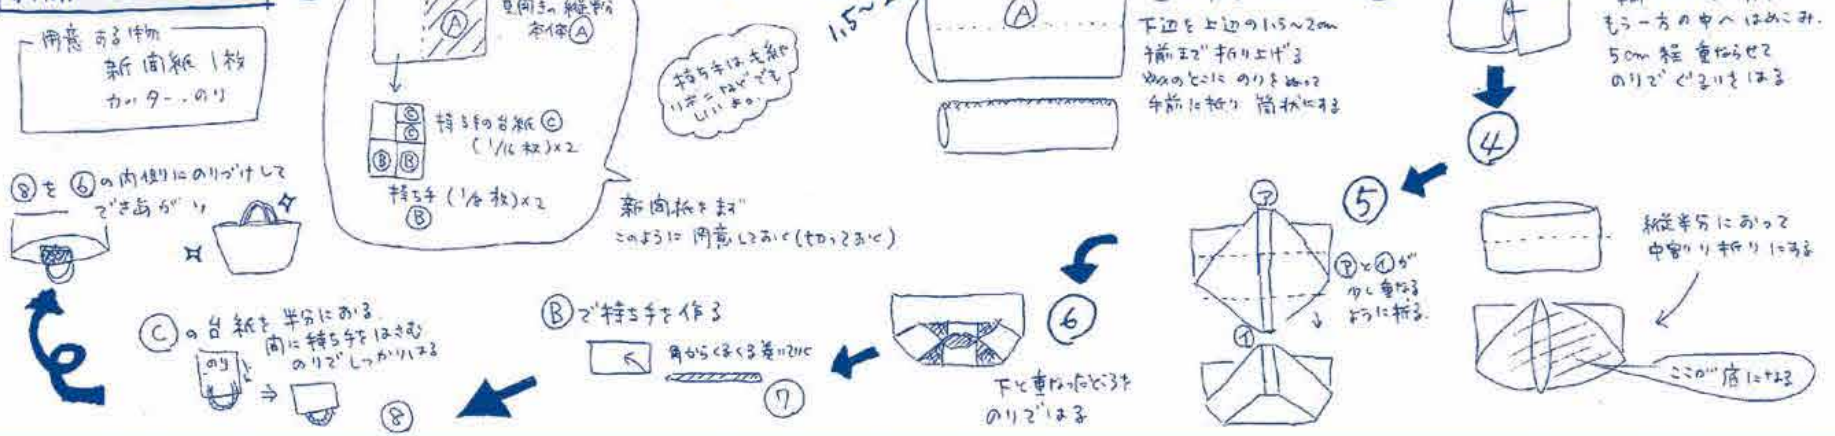 用意する物
新聞紙1枚
カッター、のり
見開きの縦半分
本体Ⓐ
Ⓐ
Ⓒ
Ⓒ
Ⓑ Ⓑ
持ち手の台紙Ⓒ
(1/16枚)×2
持ち手(1/8枚)×2
Ⓑ
持ち手は毛糸や
リボンなどでも
いいよ。
新聞紙をまず
このように用意しておく(切っておく)
1.5~2
Ⓐ
下辺を上辺の1.5~2cm
手前まで折り上げる
のりをぬって
手前に折り筒状にする
もう一方の中へはめこみ.
5cm程重ならせて
のりでぐるりをはる
④
縦半分におって
中割り折りにする
ここが底になる
⑤
㋐
㋐と㋑が
少し重なる
ように折る.
㋑
⑥
下と重なったところを
のりではる
Ⓑで持ち手を作る
角からくるくる巻いていく
⑦
Ⓒの台紙を半分におる.
間に持ち手をはさむ
のりでしっかりはる
のり
⑧
⑧を⑥の内側にのりづけして
できあがり